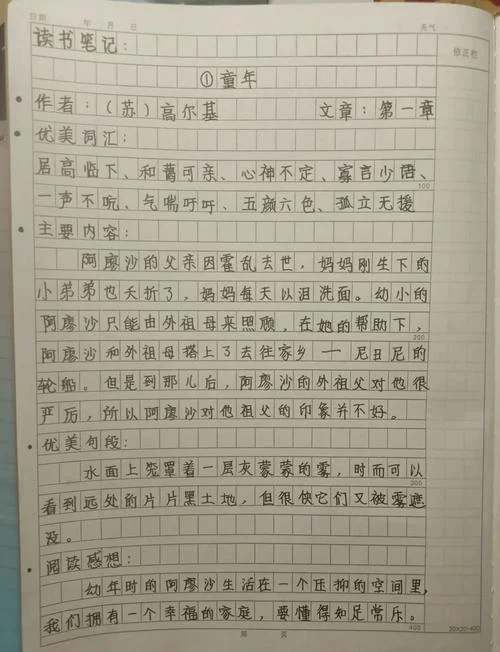 日期 年 月 日 天气
读书笔记: 修正栏
①童年
作者:(苏)高尔基 文章:第一章
优美词汇:
居高临下、和蔼可亲、心神不定、寡言少语、
100
一声不吭、气喘吁吁、五颜六色、孤立无援
主要内容:
阿廖沙的父亲因霍乱去世,妈妈刚生下的
小弟弟也夭折了,妈妈每天以泪洗面。幼小的
阿廖沙只能由外祖母来照顾,在她的帮助下,
200
阿廖沙和外祖母搭上了去往家乡—尼丑尼的
轮船。但是到那儿后,阿廖沙的外祖父对他很
严厉,所以阿廖沙对他祖父的印象并不好。
优美句段:
水面上笼罩着一层灰蒙蒙的雾,时而可以
300
看到远处的片片黑土地,但很快它们又被雾遮
没。
阅读感想:
幼年时的阿廖沙生活在一个压抑的空间里,
我们拥有一个幸福的家庭,要懂得知足常乐。
400 20×20=400
第 页